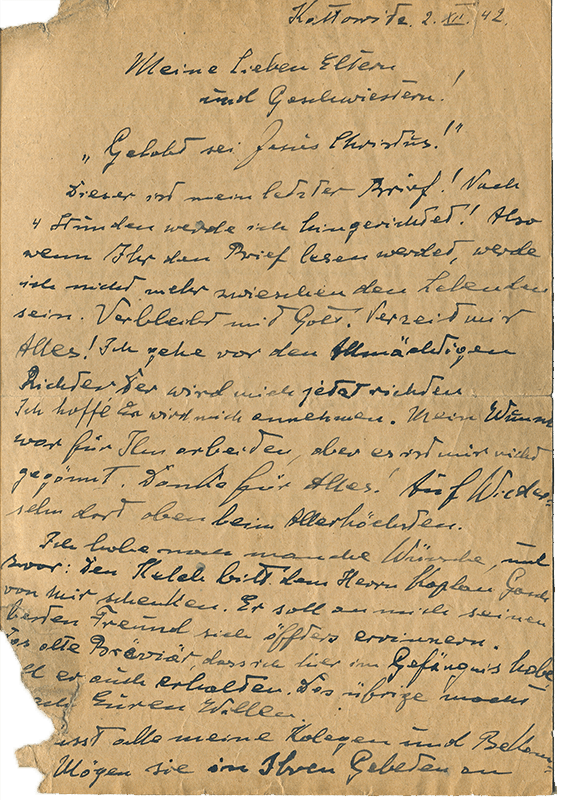 Kattowitz. 2. XII. 42.
Meine Lieben Eltern
und Geschwiestern!
"Gelobt sei Jesus Christus!"
Dieser ist mein letzter Brief! Nach
4 Stunden werde ich hingerichtet! Also
wenn Ihr den Brief lesen werdet, werde
ich nicht mehr zwieschen den Lebenden
sein. Verbleibt mit Gott! Verzeiht mir
Alles! Ich gehe vor den Allmächtigen
Richter der wird mich jetzt richten
Ich hoffe Er wird mich annehmen. Mein Wunsch
war für Ihm arbeiten, aber es ist mir nicht
gegönnt. Danke für Alles! Auf Wieder-
sehn dort oben beim Allerhöchsten.
Ich habe noch manche Wünsche, und
zwar: Den Kelch bitt dem Herrn Kaplan
von mir schenken. Er soll an mich seinen
besten Freund sich öffters errinnern.
Das alte Breviär, dass ich hier im Gefängnis habe
er auch erhalten. Das übrige macht
Euren Willen.
alle meine Kolegen und Bekan-
Mögen sie in Ihren Gebeten an